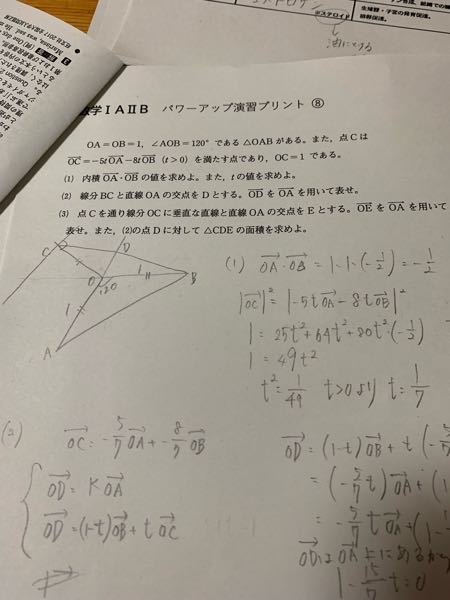 ステロイド
数学ⅠAⅡB パワーアップ演習プリント ⑧
OA=OB=1，∠AOB=120°である△OABがある。また，点Cは
OC=-5tOA-8tOB (t>0) を満たす点であり，OC=1である。
(1) 内積OA・OBの値を求めよ。また，tの値を求めよ。
(2) 線分BCと直線OAの交点をDとする。ODをOAを用いて表せ。
(3) 点Cを通り線分OCに垂直な直線と直線OAの交点をEとする。OEをOAを用いて
表せ。また，(2)の点Dに対して△CDEの面積を求めよ。
C
D
O
120
1
B
1
A
(1) OA・OB=1・1・(-1/2)=-1/2
|OC|²=|-5tOA-8tOB|²
1=25t²+64t²+80t²・(-1/2)
1=49t²
t²=1/49 t>0より t=1/7
(2) OC=-5/7OA+-8/7OB
OD=KOA
OD=(1-t)OB+tOC
OD=(1-t)OB+t(-5/7
=(-5/7t)OA+(1
=-5/7tOA+(1-
ODはOA上にあるから
1-15/7t=0